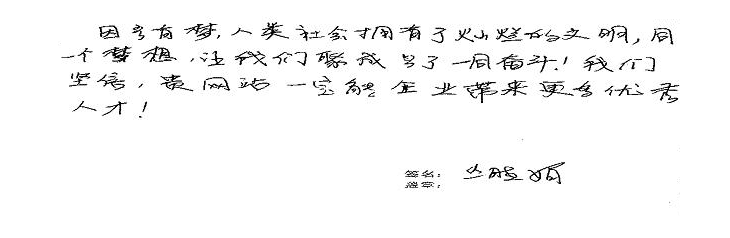 因为有梦,人类社会才拥有了灿烂的文明,同
一个梦想,让我们聚成为了一同奋斗!我们
坚信,贵网站一定能企业带来更多优秀
人才!
签名:
盖章: